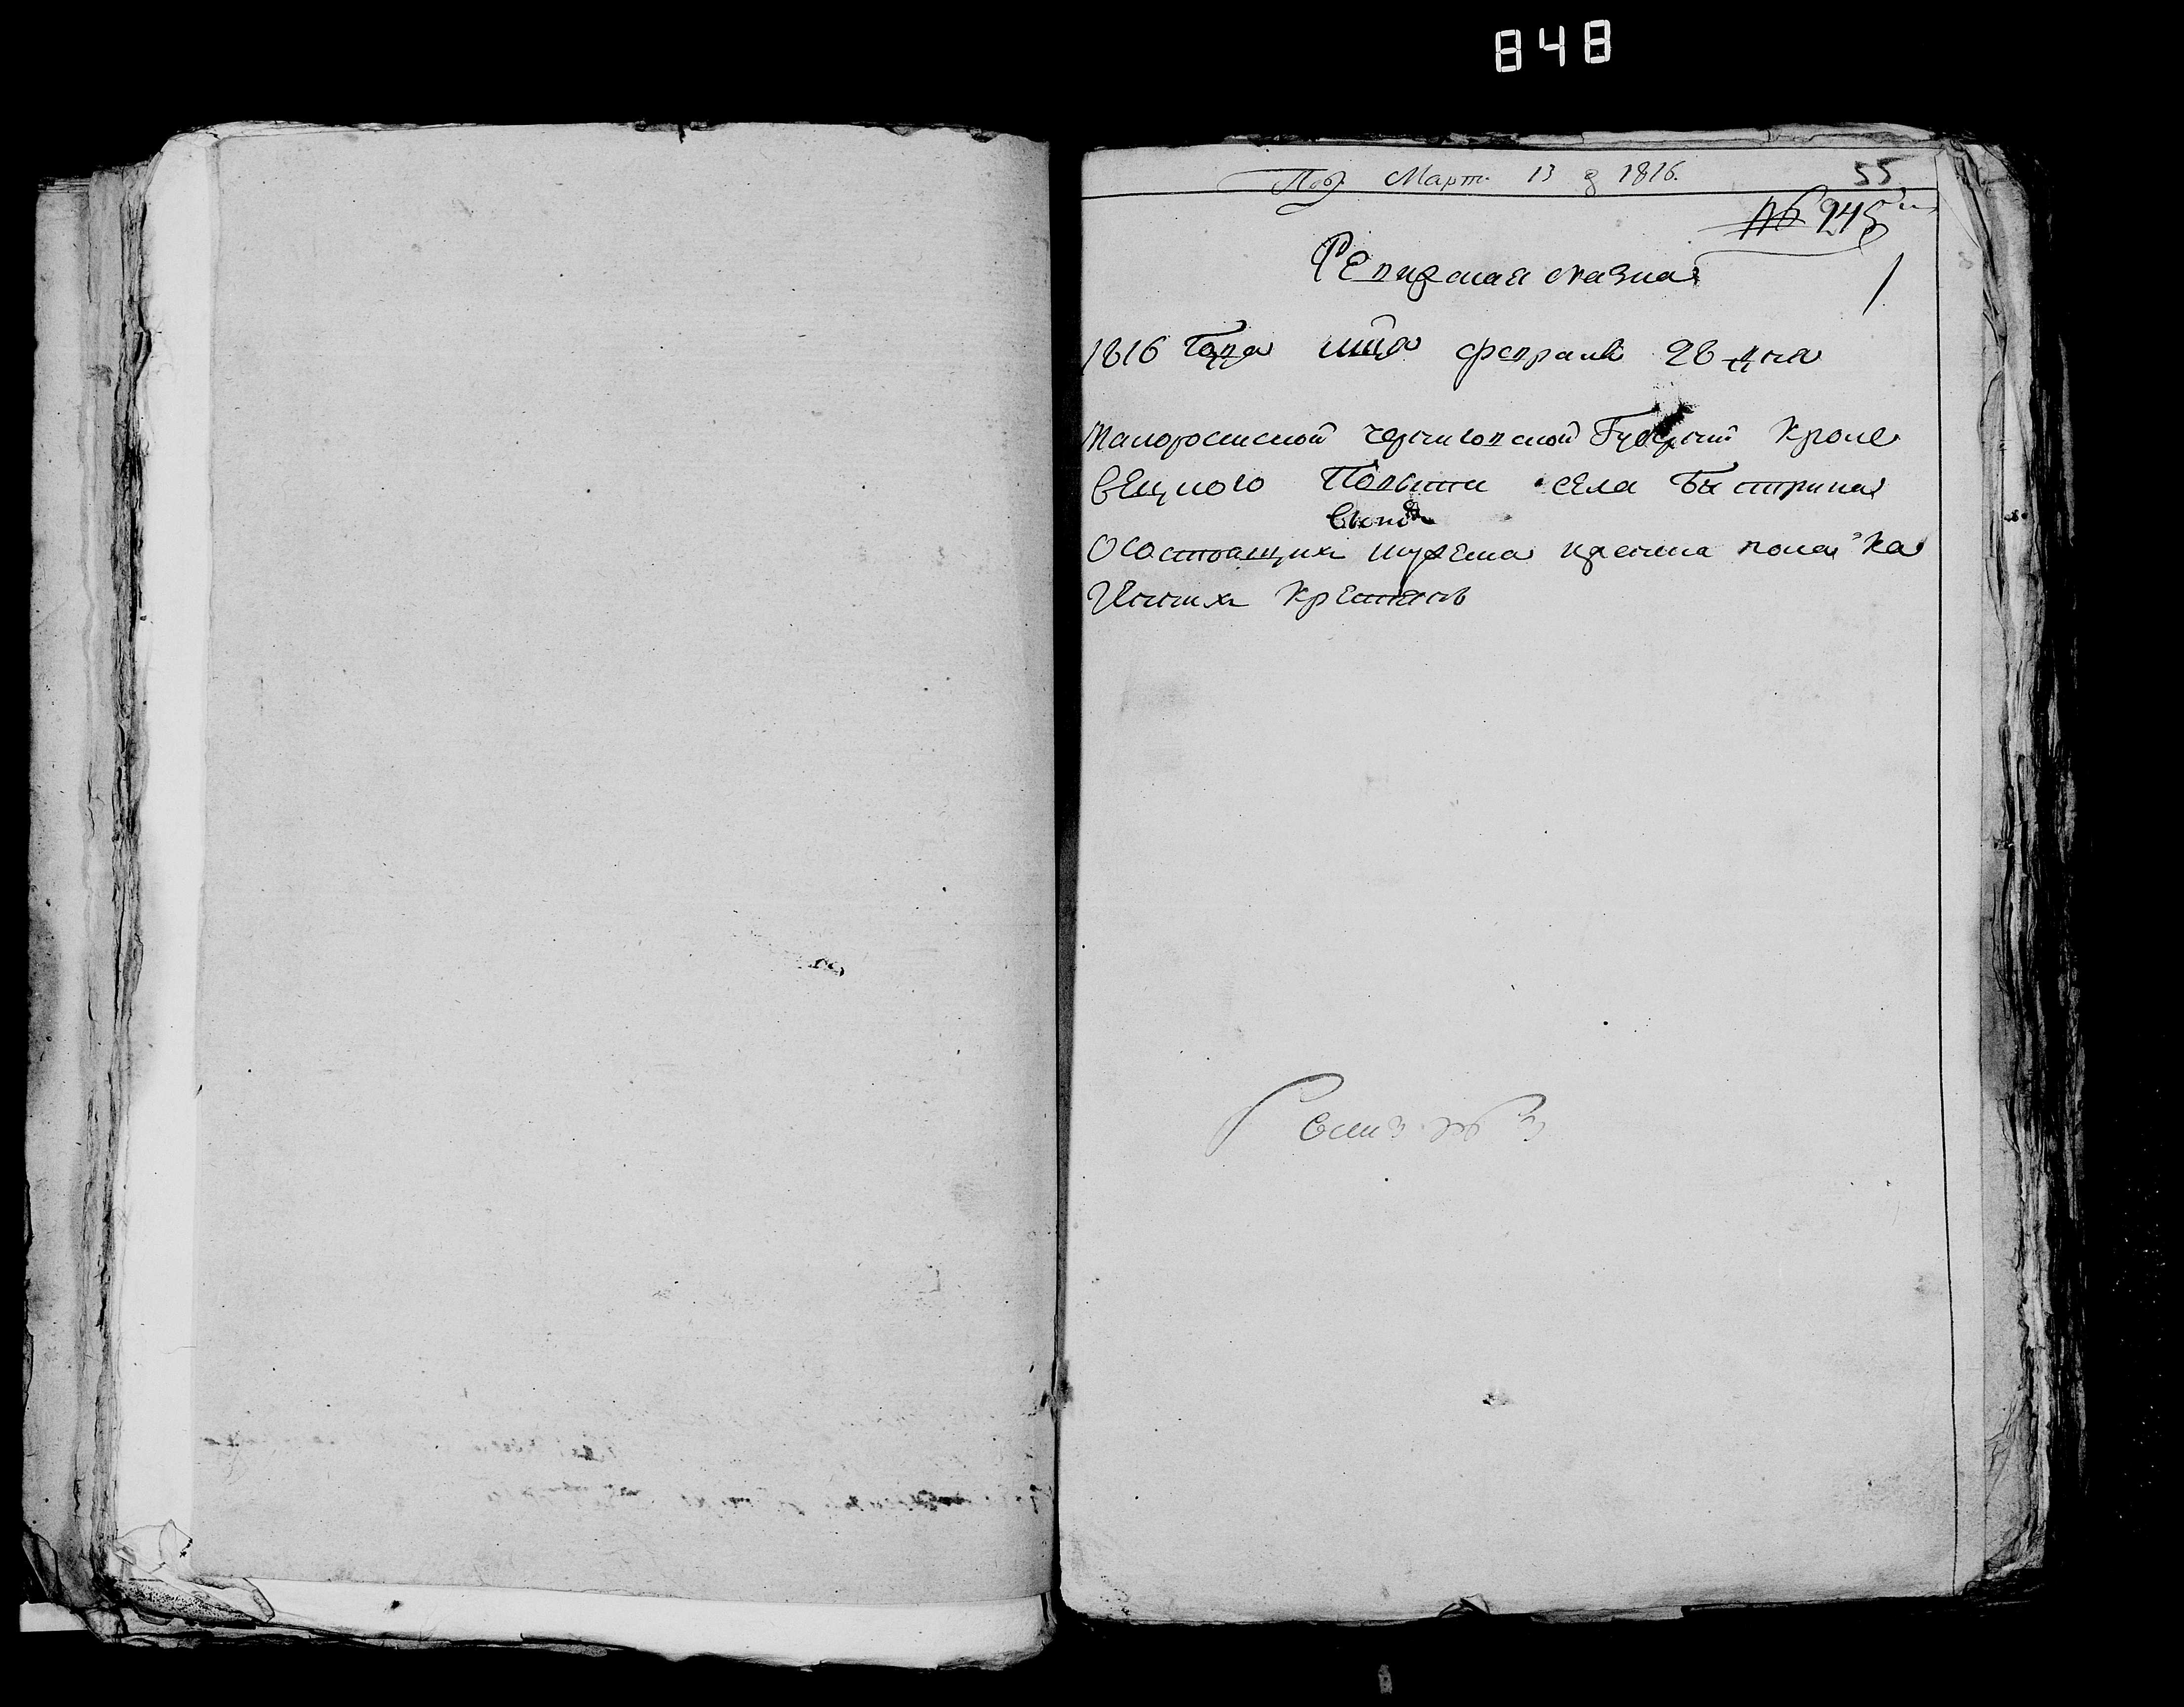 848
Под. Март. 13 д 1816.
55
№ 245
Ревизская сказка
1816 Года мца февраля 28 дня
Малоросиской черниговской Губернии Кроле
вецкого Повѣта села Быстрика
о состоящих мужеска иженска пола Ка
зенных Крестянъ